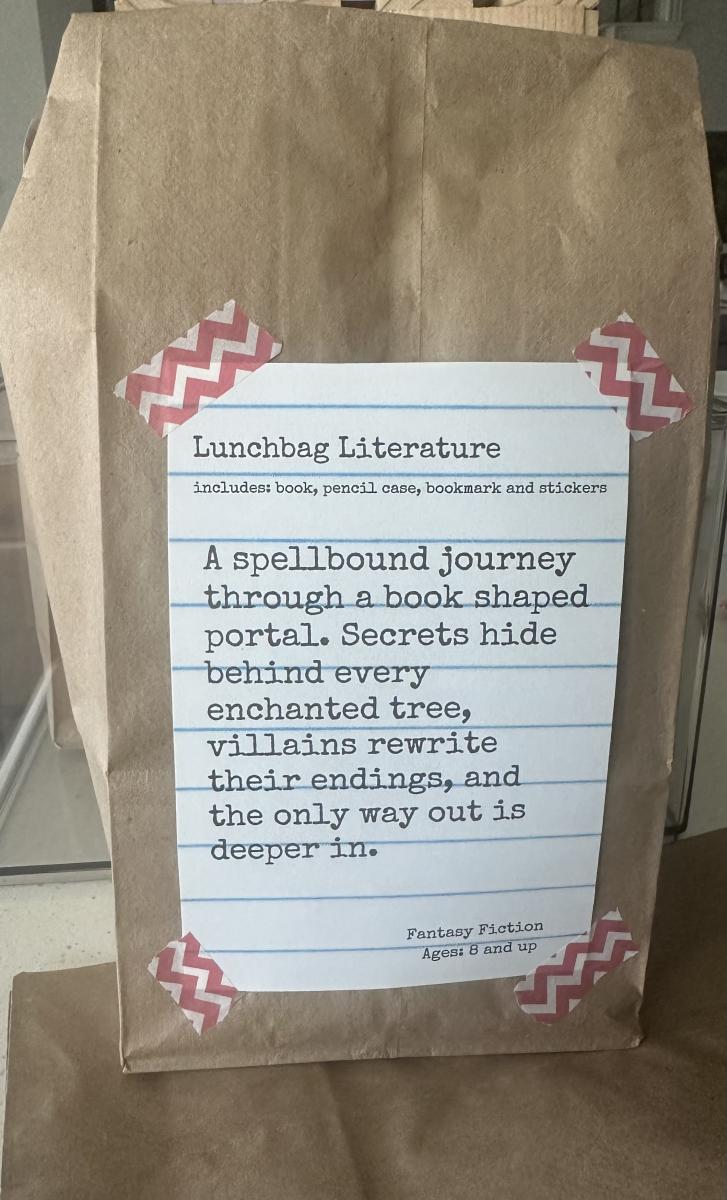 Lunchbag Literature
includes: book, pencil case, bookmark and stickers
A spellbound journey
through a book shaped
portal. Secrets hide
behind every
enchanted tree,
villains rewrite
their endings, and
the only way out is
deeper in.
Fantasy Fiction
Ages: 8 and up